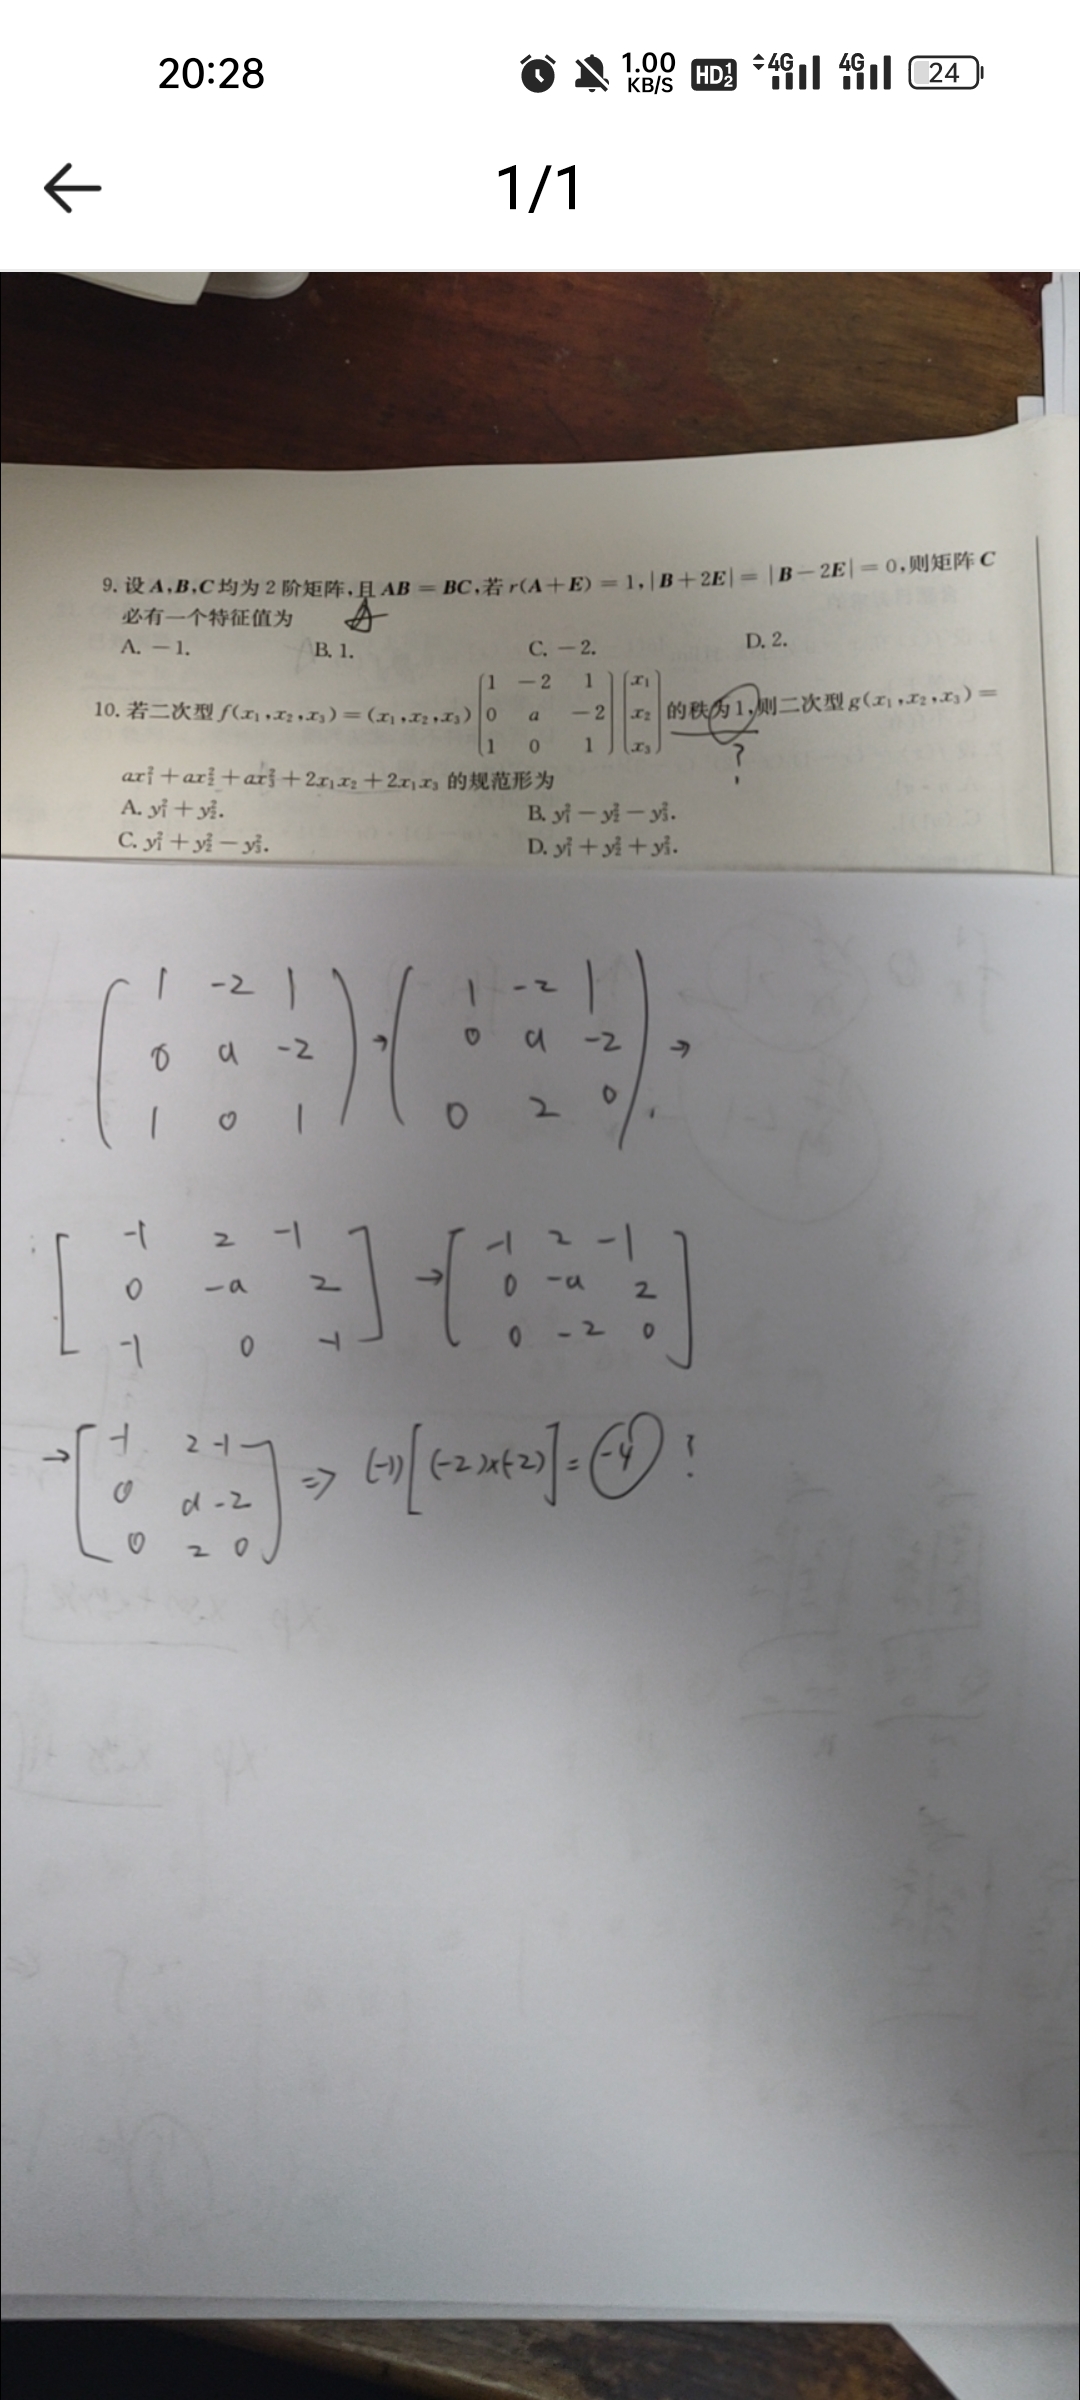 20:28
1.00 KB/S HD 1 2 4G 4G 24
1/1
9. 设 A,B,C 均为 2 阶矩阵,且 AB = BC,若 r(A+E) = 1,|B+2E| = |B-2E| = 0,则矩阵 C
必有一个特征值为 A
A. -1. B. 1. C. -2. D. 2.
1 -2 1 x₁
10. 若二次型 f(x₁,x₂,x₃) = (x₁,x₂,x₃) 0 a -2 x₂ 的秩为 1,则二次型 g(x₁,x₂,x₃) =
1 0 1 x₃
?
ax₁²+ax₂²+ax₃²+2x₁x₂+2x₁x₃ 的规范形为
A. y₁²+y₂². B. y₁²-y₂²-y₃².
C. y₁²+y₂²-y₃². D. y₁²+y₂²+y₃².
1 -2 1 1 -2 1
0 a -2 → 0 a -2 →
1 0 1 0 2 0
-1 2 -1 -1 2 -1
0 -a 2 → 0 -a 2
-1 0 -1 0 -2 0
-1 2 -1
→ 0 a -2 ⇒ (-1)[(-2)x(-2)] = -4 ?
0 2 0